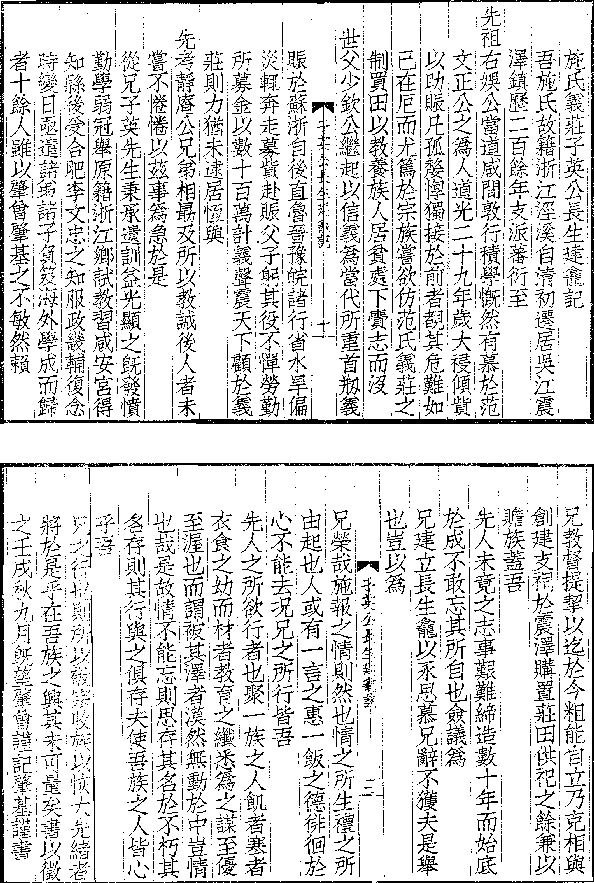 施氏義莊子英公長生連龕記
吾施氏故籍浙江涇溪自清初遷居吳江震
澤鎮歷二百餘年支派蕃衍至
先祖右娛公當道咸間敦行積學慨然有慕於范
文正公之為人道光二十九年歲大祲傾貲
以助賑凡孤嫠惸獨接於前者覩其危難如
己在戹而尤篤於宗族嘗欲仿范氏義莊之
制買田以教養族人居貧處下賫志而沒
世父少欽公繼起以信義為當代所重首刱義
賑於蘇浙自後直魯晉豫皖諸行省水旱偏
災輒奔走募貲赴賑父子躬其役不憚勞勤
所募金以數十百萬計義聲震天下顧於義
莊則力猶未逮居恆與
先考靜庵公兄弟相勗及所以教誡後人者未
嘗不惓惓以茲事為急於是
從兄子英先生秉承遺訓益光顯之既發憤
勤學弱冠舉原籍浙江鄉試教習咸安宮得
知縣後受合肥李文忠之知服政畿輔復念
時變日亟遣諸弟諸子負笈海外學成而歸
者十餘人雖以肇曾肇基之不敏然賴
兄教督提挈以迄於今粗能自立乃克相與
創建支祠於震澤購置莊田供祀之餘兼以
贍族蓋吾
先人未竟之志事艱難締造數十年而始底
於成不敢忘其所自也僉議為
兄建立長生龕以永思慕兄辭不獲夫是舉
也豈以為
兄榮哉施報之情則然也情之所生禮之所
由起也人或有一言之惠一飯之德徘徊於
心不能去況兄之所行皆吾
先人之所欲行者也聚一族之人飢者寒者
衣食之幼而材者教育之纖悉為之謀至優
至渥也而謂被其澤者漠然無動於中豈情
也哉是故情不能忘則思存其名於不朽其
名存則其行與之俱存夫使吾族之人皆心
乎吾
兄之行也則所以敬宗收族以恢大先緒者
將於是乎在吾族之興其未可量矣書以徵
之壬戌秋九月既望肇曾謹記肇基謹書